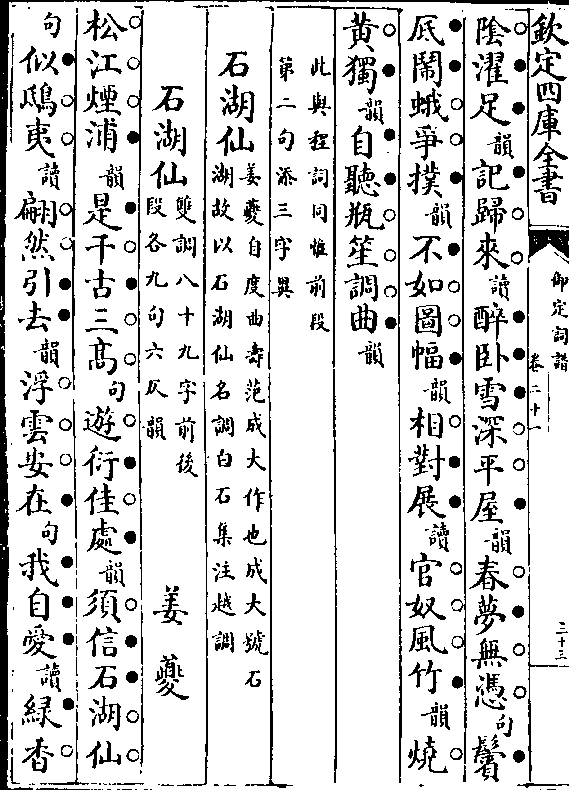 欽定四庫全書
御定詞譜
卷二十一
三十三
陰濯足韻記歸來讀醉卧雪深平屋韻春夢無憑句鬢
㡳鬧蛾爭撲韻不如圖幅韻相對展讀官奴風竹韻燒
黄獨韻自聽瓶笙調曲韻
此與程詞同惟前段
第二句添三字異
石湖仙
姜夔自度曲壽范成大作也成大號石
湖故以石湖仙名調白石集注越調
石湖仙
雙調八十九字前後
段各九句六仄韻
姜夔
松江煙浦韻是千古三髙句遊衍佳處韻須信石湖仙
句似鴟夷讀翩然引去韻浮雲安在句我自愛讀緑香